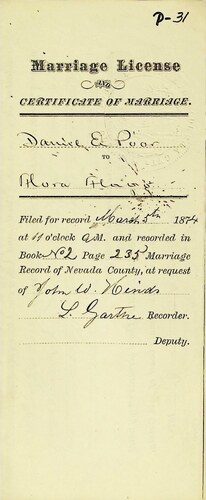 P-31
Marriage License
AND
CERTIFICATE OF MARRIAGE.
Daniel E Poor
TO
Flora
Filed for record March 5th 1874
at 11 o'clock A M. and recorded in
Book No 2 Page 235 Marriage
Record of Nevada County, at request
of John W. Hinds
L. Garthe Recorder.
Deputy.